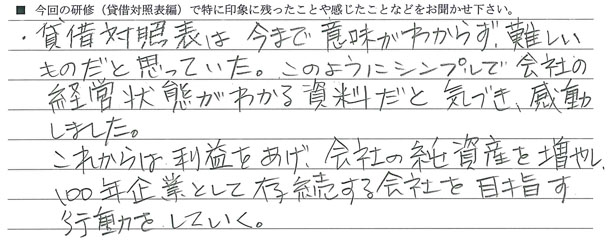 ■ 今回の研修（貸借対照表編）で特に印象に残ったことや感じたことなどをお聞かせ下さい。
・貸借対照表は今まで意味がわからず、難しい
ものだと思っていた。このようにシンプルで会社の
経営状態がわかる資料だと気づき、感動
しました。
これからは利益をあげ、会社の純資産を増やし、
100年企業として存続する会社を目指す
行動をしていく。